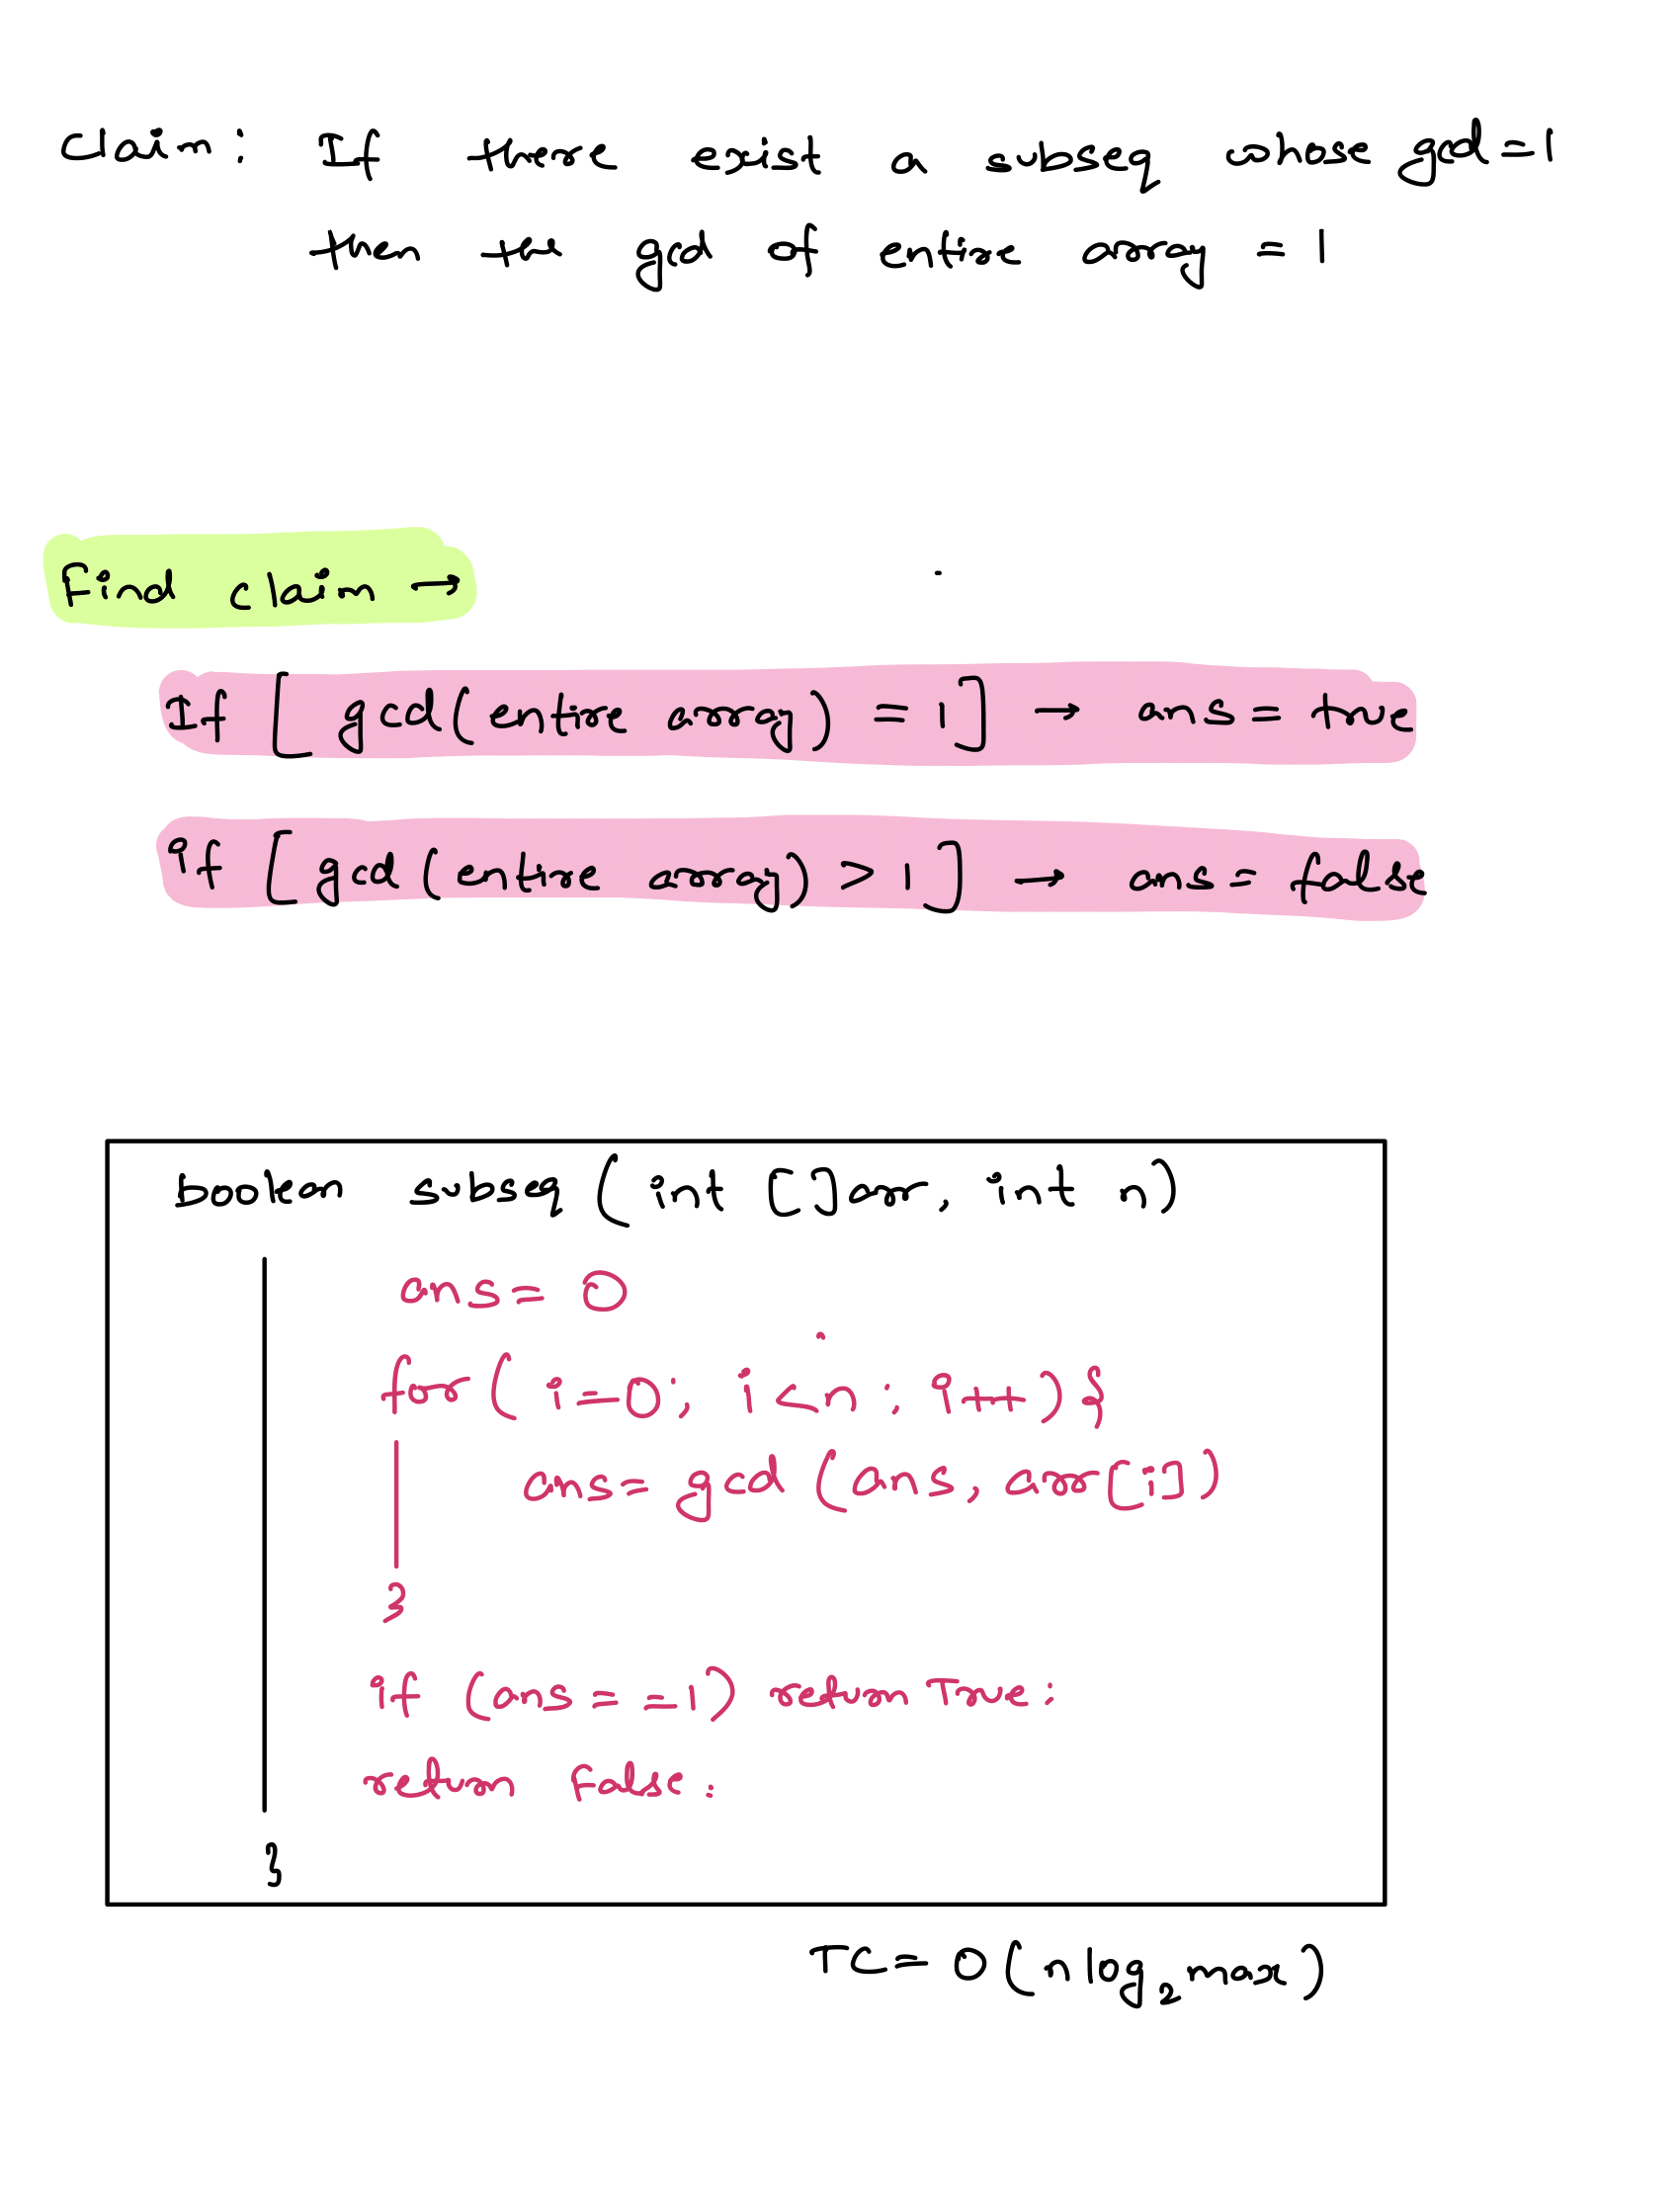 Claim: If there exist a subseq whose gcd=1
then the gcd of entire array = 1
Find claim →
If [ gcd(entire array) = 1 ] → ans= true
if [ gcd(entire array) > 1 ] → ans= false
boolean subseq ( int []arr, int n)
ans= 0
for( i=0; i<n; i++) {
ans= gcd (ans, arr[i])
}
if (ans==1) return True;
return False;
}
TC= O(nlog₂max)